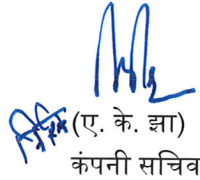 (ए. के. झा)
कंपनी सचिव